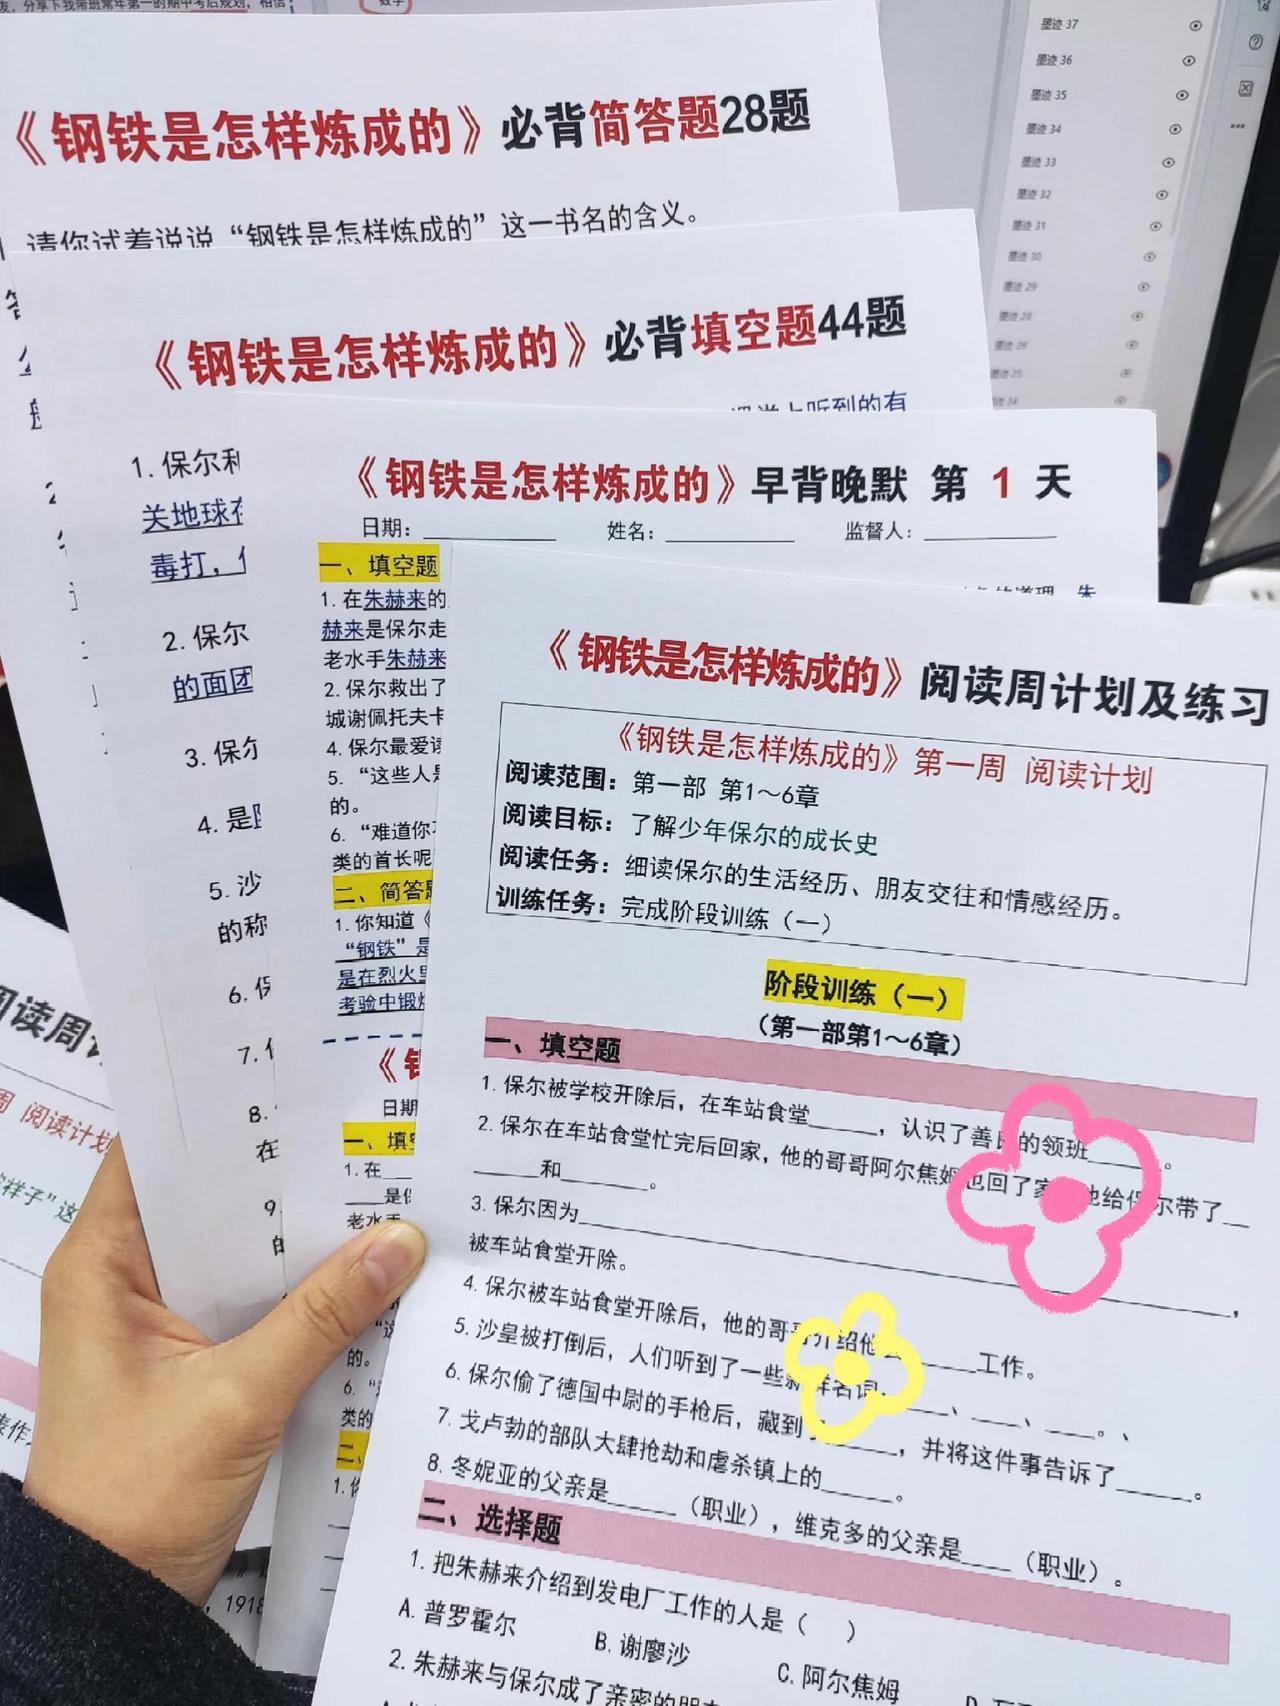 友，分享下我带班常年第一的期中考后规划，相信
数学
墨迹 37
墨迹 36
墨迹 35
墨迹 34
墨迹 33
墨迹 32
墨迹 31
墨迹 30
墨迹 29
墨迹 28
墨迹 26
墨迹 25
墨迹 24
《钢铁是怎样炼成的》必背简答题28题
请你试着说说“钢铁是怎样炼成的”这一书名的含义。
《钢铁是怎样炼成的》必背填空题44题
上听到的有
1. 保尔和
关地球存
毒打，
2. 保尔
的面团
3. 保尔
4. 是
5. 沙
的称
6. 保
7.
8.
在
9.
的
《钢铁是怎样炼成的》早背晚默 第 1 天
日期：
姓名：
监督人：
一、填空题
的道理，朱
1. 在朱赫来的
赫来是保尔走
老水手朱赫来
2. 保尔救出了
城谢佩托夫卡
4. 保尔最爱读
5. “这些人是
的。
6. “难道你
类的首长呢
二、简答题
1. 你知道《
“钢铁”是
是在烈火里
考验中锻炼
《钢
日期
一、填空
1. 在
是保
老水手
的。
6. “
类的
二、
1. 你
《钢铁是怎样炼成的》阅读周计划及练习
《钢铁是怎样炼成的》第一周 阅读计划
阅读范围：第一部 第1～6章
阅读目标：了解少年保尔的成长史
阅读任务：细读保尔的生活经历、朋友交往和情感经历。
训练任务：完成阶段训练（一）
阶段训练（一）
（第一部第1～6章）
一、填空题
1. 保尔被学校开除后，在车站食堂______，认识了善良的领班______。
2. 保尔在车站食堂忙完后回家，他的哥哥阿尔焦姆也回了家，他给保尔带了__
______和________。
3. 保尔因为____________________，
被车站食堂开除。
4. 保尔被车站食堂开除后，他的哥哥介绍他______工作。
5. 沙皇被打倒后，人们听到了一些新鲜名词，____、____、____。、
6. 保尔偷了德国中尉的手枪后，藏到______，并将这件事告诉了______。
7. 戈卢勃的部队大肆抢劫和虐杀镇上的______。
8. 冬妮亚的父亲是______（职业），维克多的父亲是____（职业）。
二、选择题
1. 把朱赫来介绍到发电厂工作的人是（ ）
A. 普罗霍尔
B. 谢廖沙
C. 阿尔焦姆
2. 朱赫来与保尔成了亲密的朋友
阅读周
周 阅读计划
祥子”这
1918